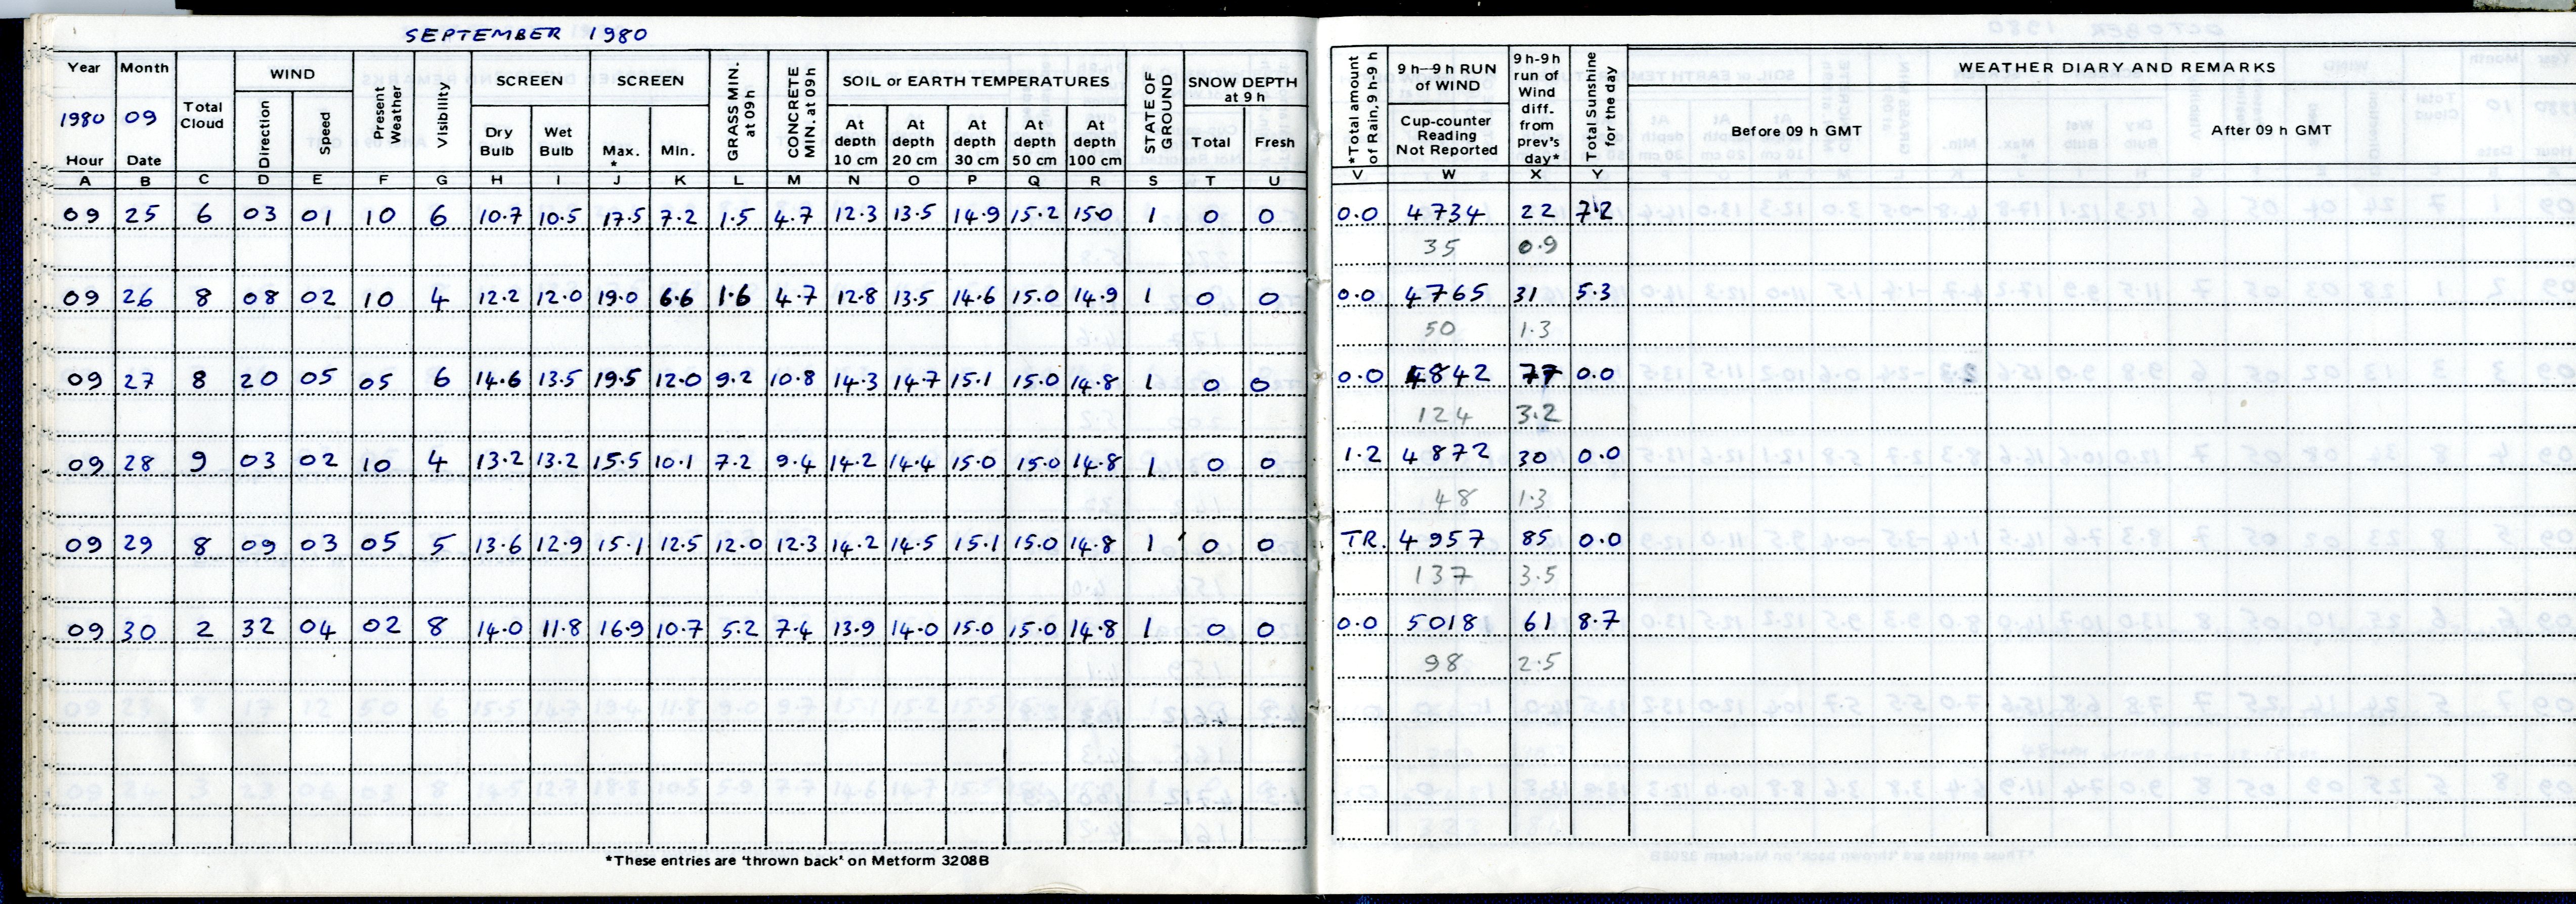 SEPTEMBER 1980
Year Month WIND SCREEN SCREEN SOIL or EARTH TEMPERATURES SNOW DEPTH at 9 h
1980 09 Total Cloud Direction Speed Present Weather Visibility Dry Bulb Wet Bulb Max. * Min. GRASS MIN. at 09 h CONCRETE MIN. at 09 h At depth 10 cm At depth 20 cm At depth 30 cm At depth 50 cm At depth 100 cm STATE OF GROUND Total Fresh
Hour Date
A B C D E F G H I J K L M N O P Q R S T U
09 25 6 03 01 10 6 10.7 10.5 17.5 7.2 1.5 4.7 12.3 13.5 14.9 15.2 15.0 1 0 0
09 26 8 08 02 10 4 12.2 12.0 19.0 6.6 1.6 4.7 12.8 13.5 14.6 15.0 14.9 1 0 0
09 27 8 20 05 05 6 14.6 13.5 19.5 12.0 9.2 10.8 14.3 14.7 15.1 15.0 14.8 1 0 0
09 28 9 03 02 10 4 13.2 13.2 15.5 10.1 7.2 9.4 14.2 14.4 15.0 15.0 14.8 1 0 0
09 29 8 09 03 05 5 13.6 12.9 15.1 12.5 12.0 12.3 14.2 14.5 15.1 15.0 14.8 1 0 0
09 30 2 32 04 02 8 14.0 11.8 16.9 10.7 5.2 7.4 13.9 14.0 15.0 15.0 14.8 1 0 0
*These entries are 'thrown back' on Metform 3208B
*Total amount of Rain, 9 h-9 h
9 h—9 h RUN of WIND
Cup-counter Reading Not Reported
9 h-9 h run of Wind diff. from prev's day*
Total Sunshine for the day
WEATHER DIARY AND REMARKS
Before 09 h GMT After 09 h GMT
V W X Y
0.0 4734 22 7.2
35 0.9
0.0 4765 31 5.3
50 1.3
0.0 4842 77 0.0
124 3.2
1.2 4872 30 0.0
48 1.3
TR. 4957 85 0.0
137 3.5
0.0 5018 61 8.7
98 2.5